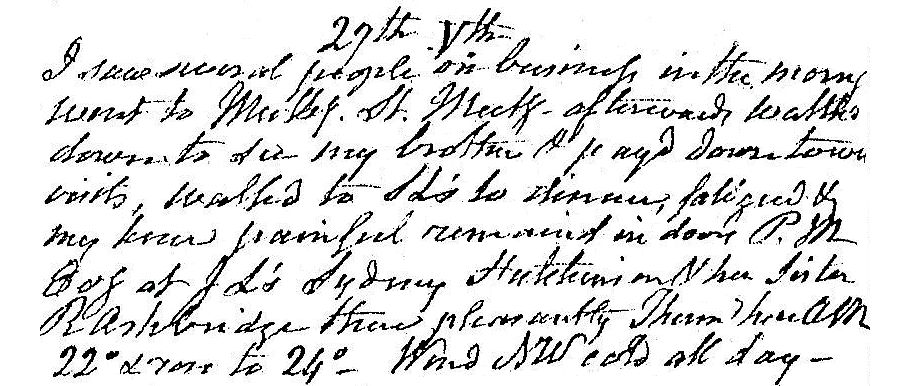 27th Vth
I saw several people on business in the morng
went to Mulby. St. Meetg - afterwards walked
down to see my brother & payd down town
visits, walked to JL's to dinner, fatigued &
my knee painful remaind in doors P.M
Evg at JL's Sydney Hutchinson & her Sister
R Ashbridge there pleasantly Therm'r here AM
22° & rose to 24° - Wind NW cold all day -